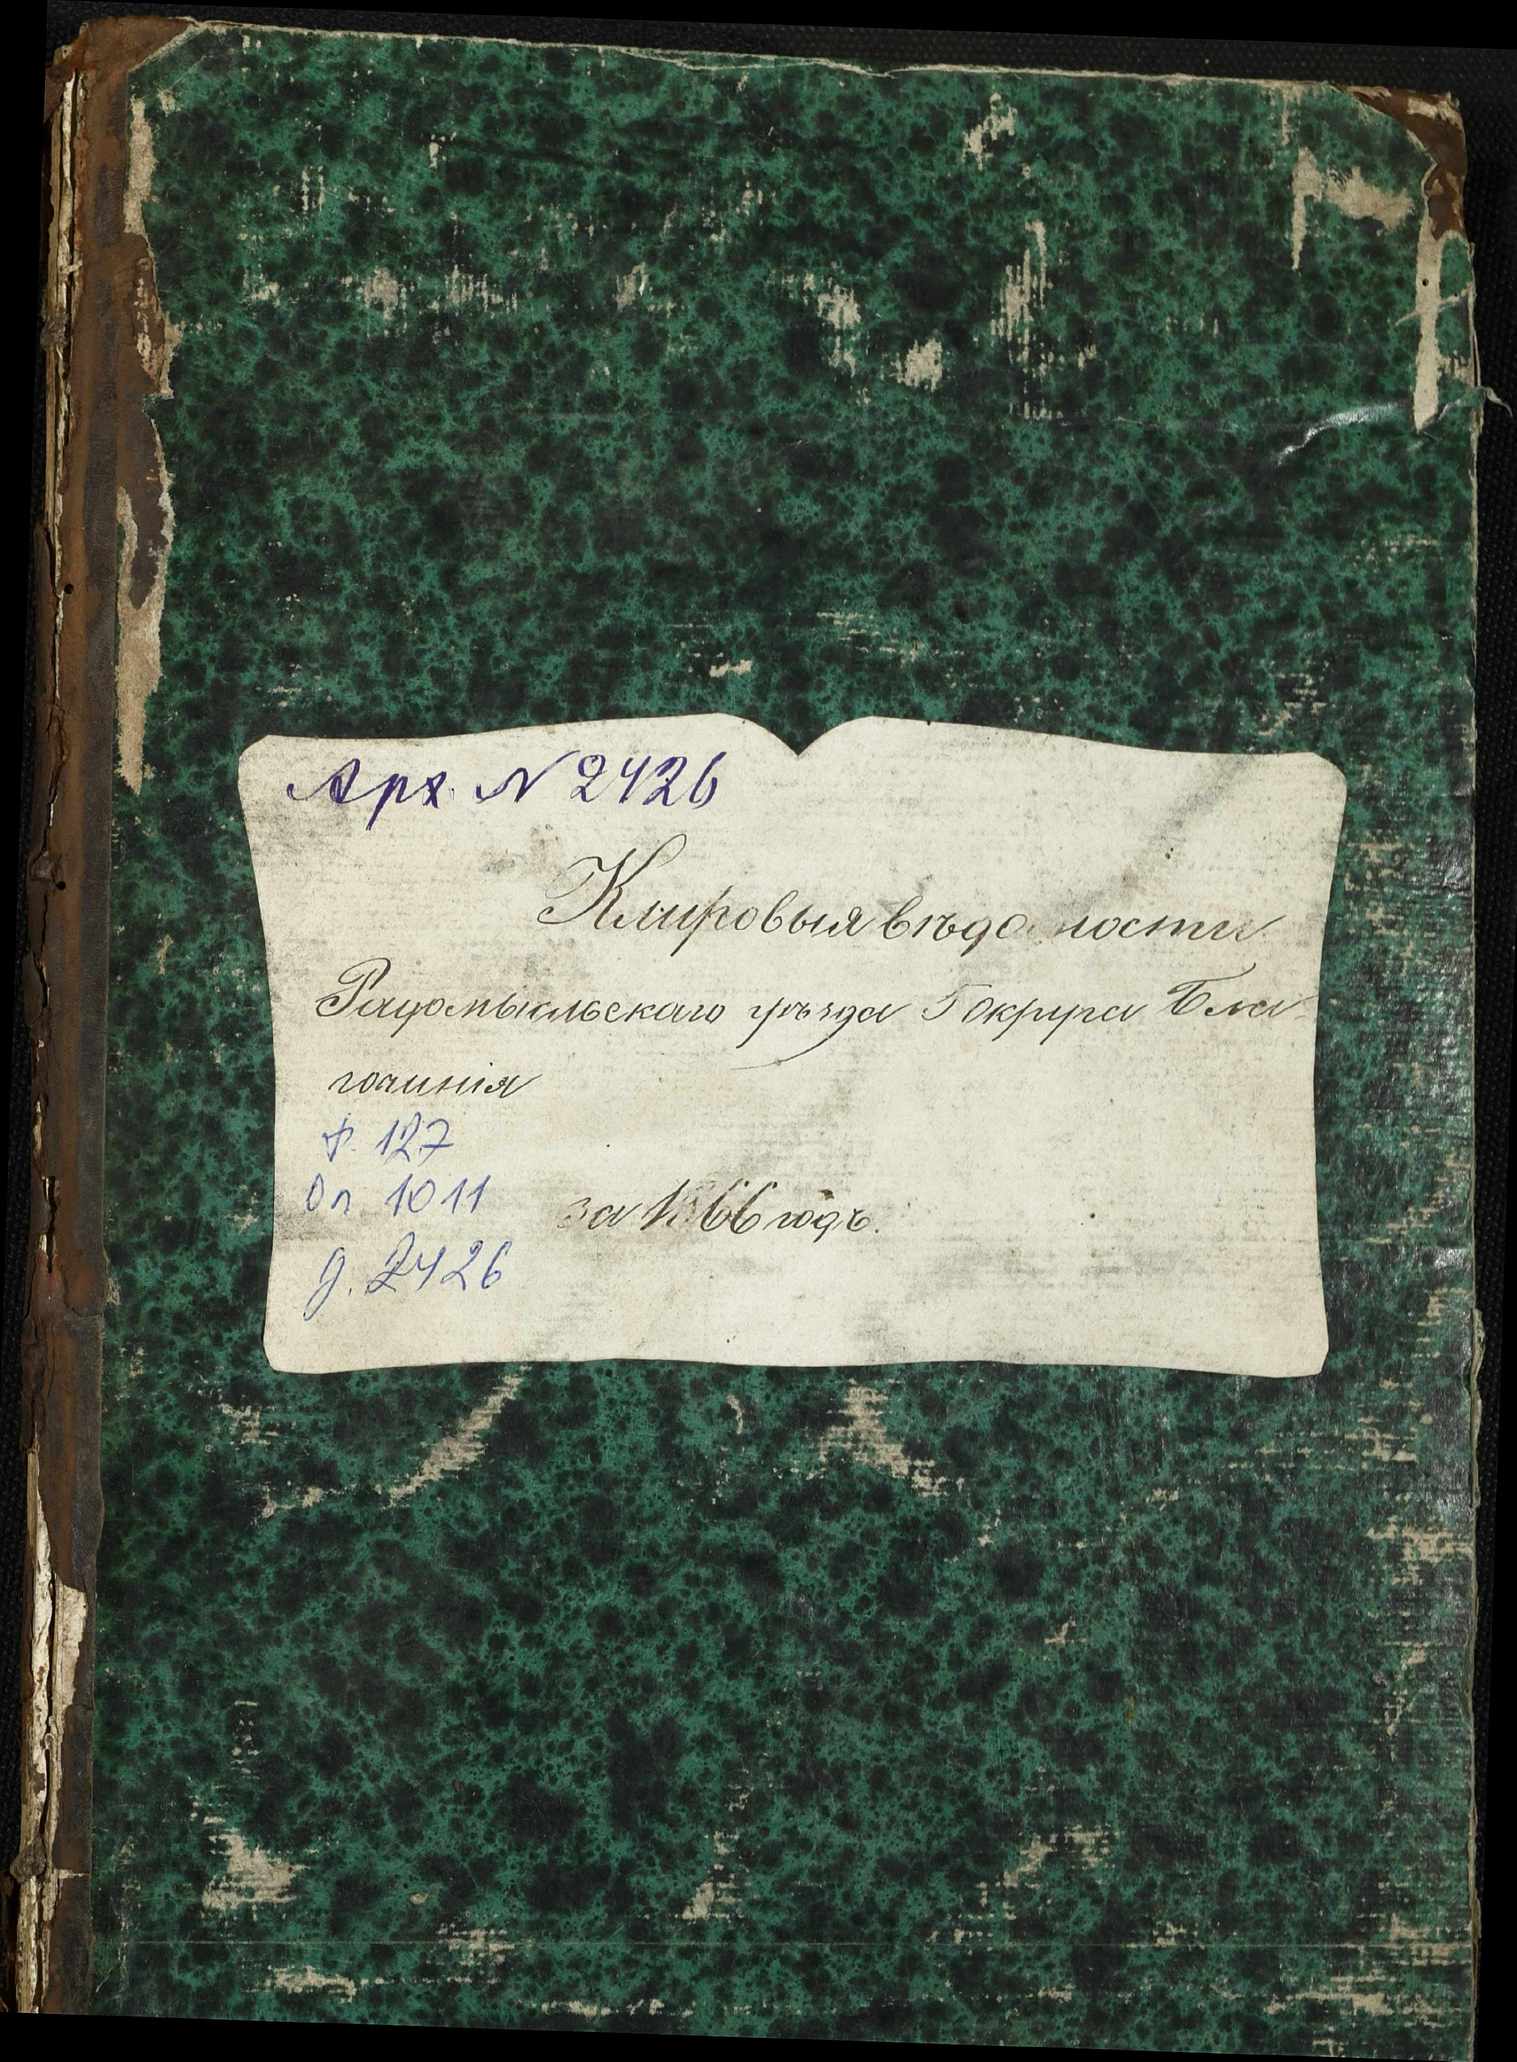 Арх. № 2426
Клировыя вѣдомости
Радомысльскаго уѣзда 5 округа Бла-
гочинія
ф. 127
Оп 1011
д. 2426
за 1866 годъ.